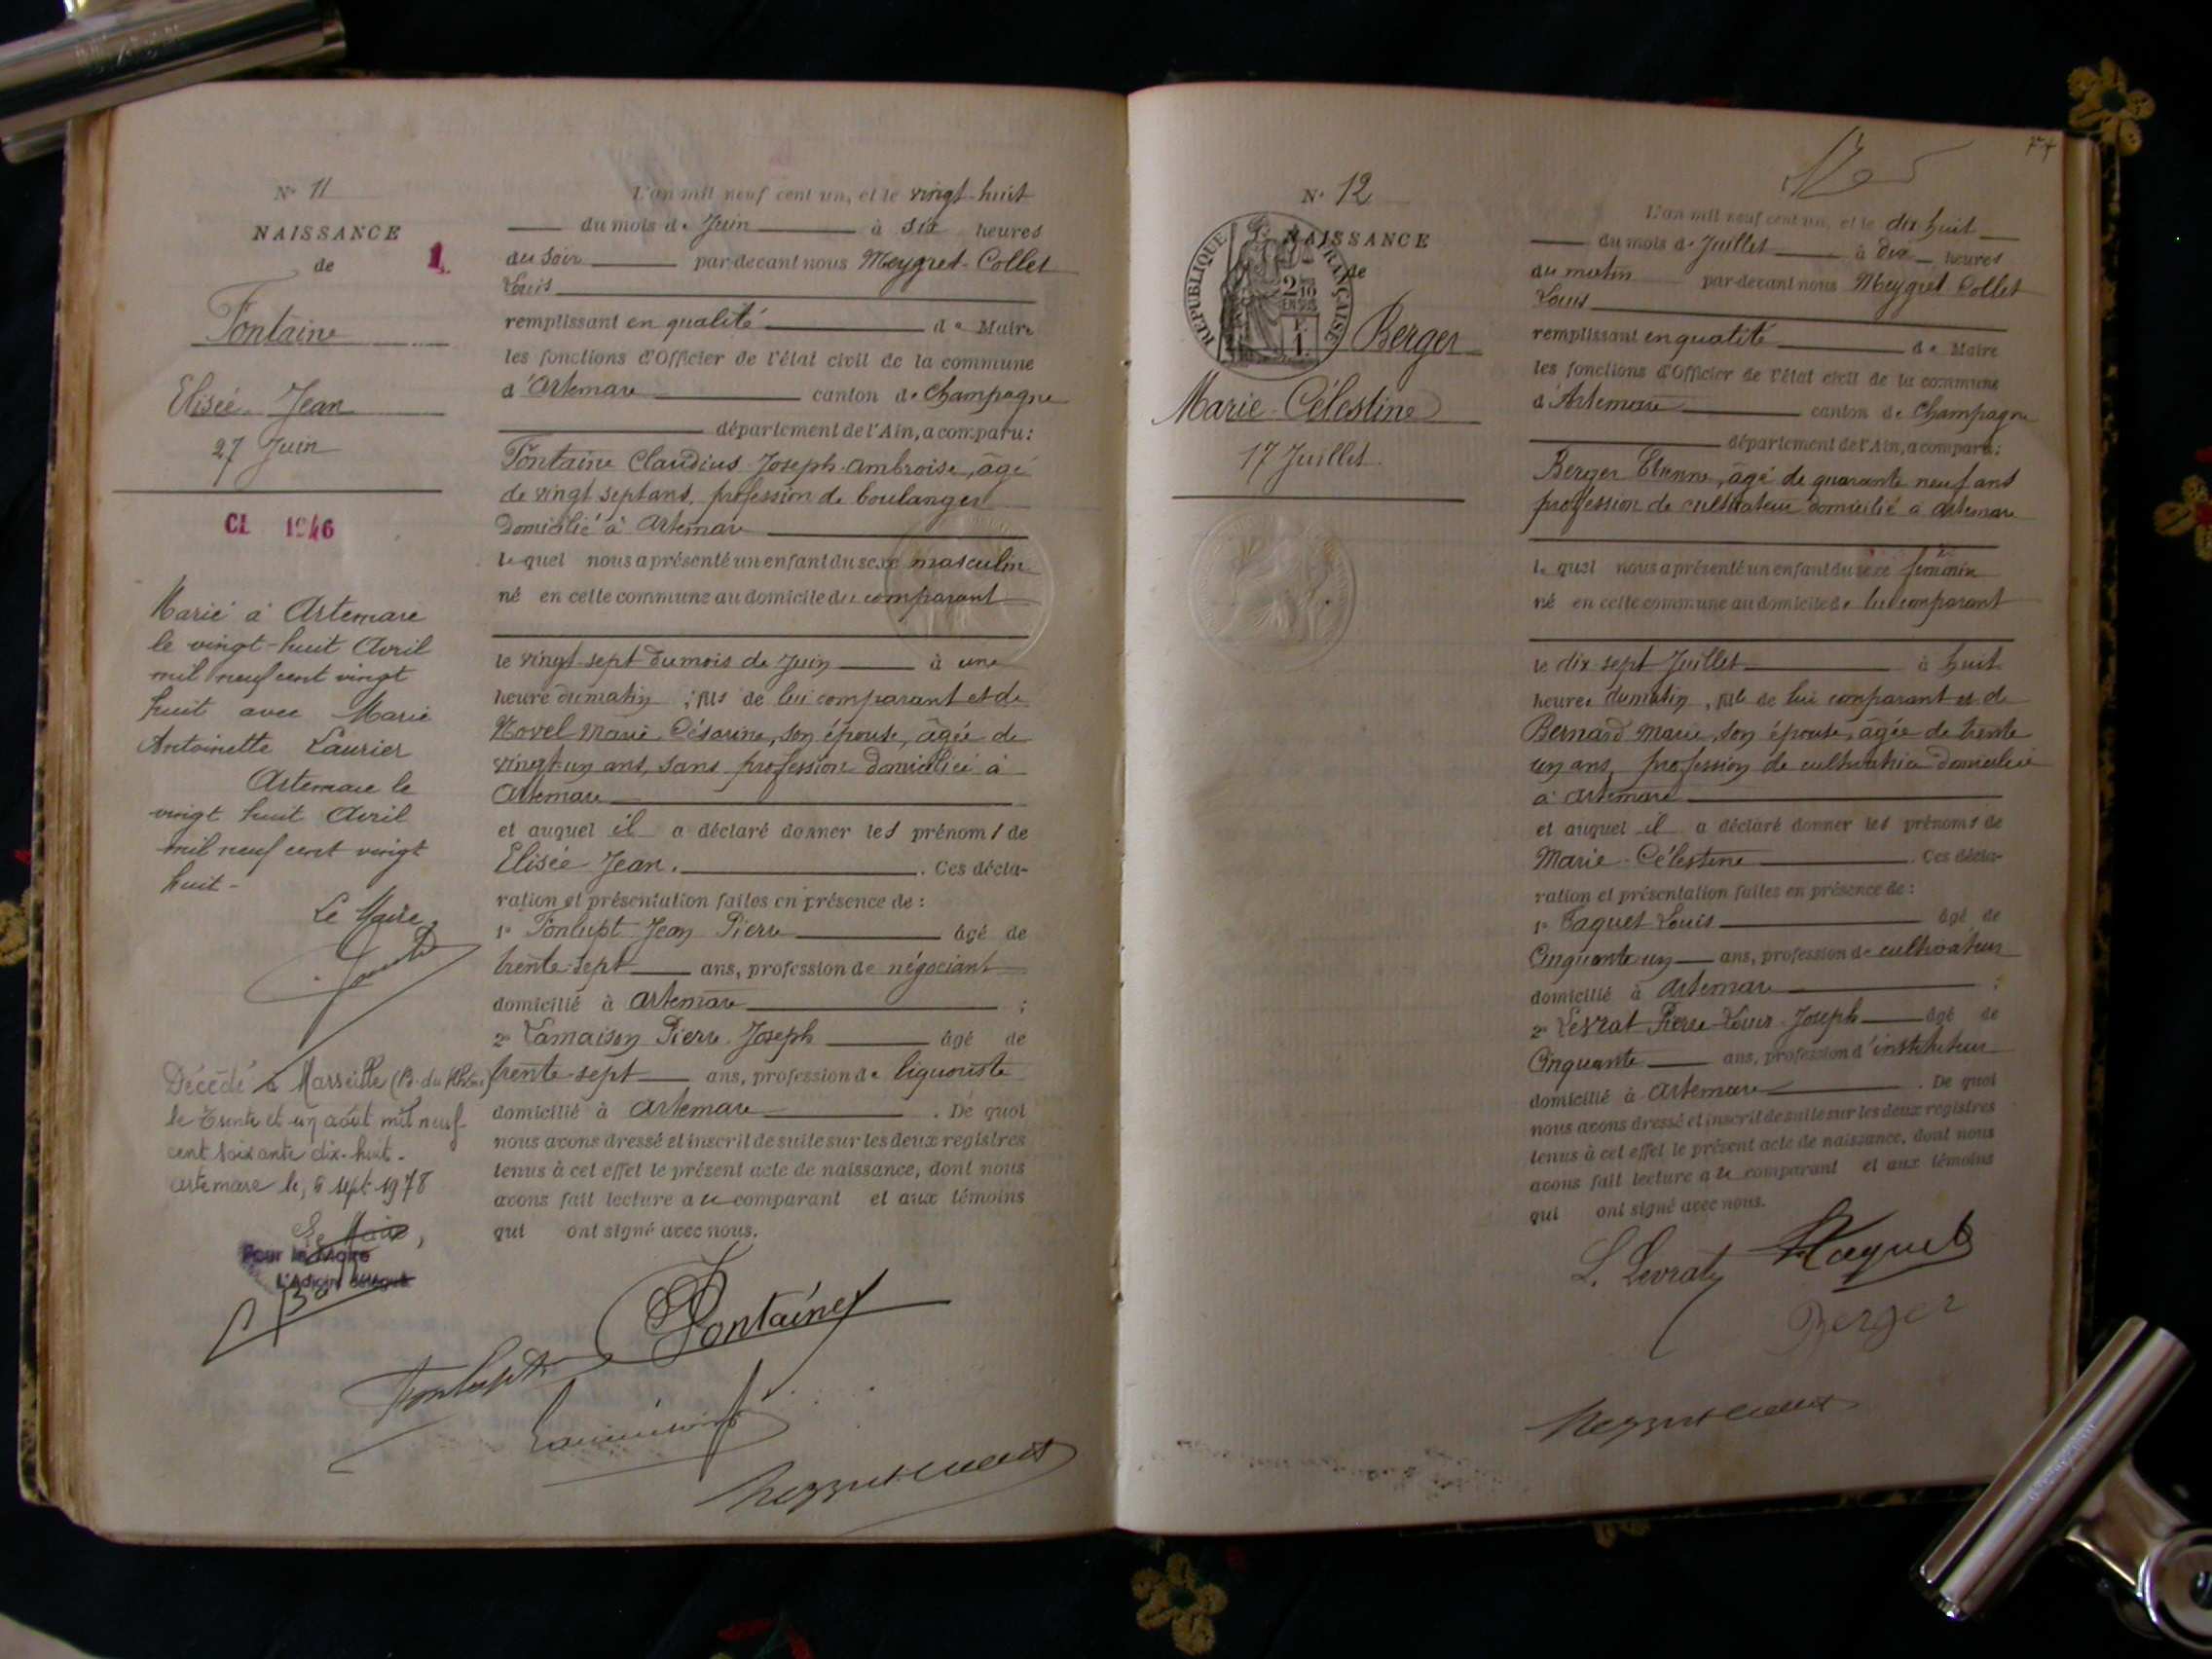 N° 11
NAISSANCE
de
1
Fontaine
Elisée Jean
27 Juin
CL 1946
Marié à Artemare
le vingt-huit Avril
mil neuf cent vingt
huit avec Marie
Antoinette Laurier
Artemare le
vingt huit Avril
mil neuf cent vingt
huit -
Le Maire,
Décédé à Marseille (B. du Rhône)
le trente et un août mil neuf
cent soixante dix-huit.
Artemare le, 6 sept 1978
Le Maire,
Pour le Maire
L'Adjoint délégué
L'an mil neuf cent un, et le vingt-huit
du mois de Juin à six heures
du soir par-devant nous Meygret-Collet
Louis
remplissant en qualité de Maire
les fonctions d'Officier de l'état civil de la commune
d'Artemare canton de Champagne
département de l'Ain, a comparu:
Fontaine Claudius Joseph Ambroise, âgé
de vingt sept ans, profession de boulanger
domicilié à Artemare
lequel nous a présenté un enfant du sexe masculin
né en cette commune au domicile du comparant
le vingt-sept du mois de Juin à une
heure du matin, fils de lui comparant et de
Novel Marie Césarine, son épouse, âgée de
vingt-un ans, sans profession domiciliée à
Artemare
et auquel il a déclaré donner les prénoms de
Elisée Jean. Ces décla-
ration et présentation faites en présence de:
1° Fonlupt Jean Pierre âgé de
trente-sept ans, profession de négociant
domicilié à Artemare;
2° Lamaison Pierre Joseph âgé de
trente-sept ans, profession de liquoriste
domicilié à Artemare. De quoi
nous avons dressé et inscrit de suite sur les deux registres
tenus à cet effet le présent acte de naissance, dont nous
avons fait lecture au comparant et aux témoins
qui ont signé avec nous.
Fontaine
Fonlupt
N° 12
NAISSANCE
de
REPUBLIQUE FRANÇAISE
2/10
EN SUS
1
Berger
Marie-Célestine
17 Juillet
L'an mil neuf cent un, et le dix huit
du mois de Juillet à dix heures
du matin par-devant nous Meygret Collet
Louis
remplissant en qualité de Maire
les fonctions d'Officier de l'état civil de la commune
d'Artemare canton de Champagne
département de l'Ain, a comparu:
Berger Etienne, âgé de quarante neuf ans
profession de cultivateur domicilié à Artemare
lequel nous a présenté un enfant du sexe féminin
né en cette commune au domicile de lui comparant
le dix-sept Juillet à huit
heures du matin, fille de lui comparant et de
Bernard Marie, son épouse, âgée de trente
un ans, profession de cultivatrice domiciliée
à Artemare
et auquel il a déclaré donner les prénoms de
Marie-Célestine. Ces décla-
ration et présentation faites en présence de:
1° Taquet Louis âgé de
Cinquante un ans, profession de cultivateur
domicilié à Artemare;
2° Levrat Pierre-Louis Joseph âgé de
Cinquante ans, profession d'instituteur
domicilié à Artemare. De quoi
nous avons dressé et inscrit de suite sur les deux registres
tenus à cet effet le présent acte de naissance, dont nous
avons fait lecture au comparant et aux témoins
qui ont signé avec nous.
L. Levrat
Berger